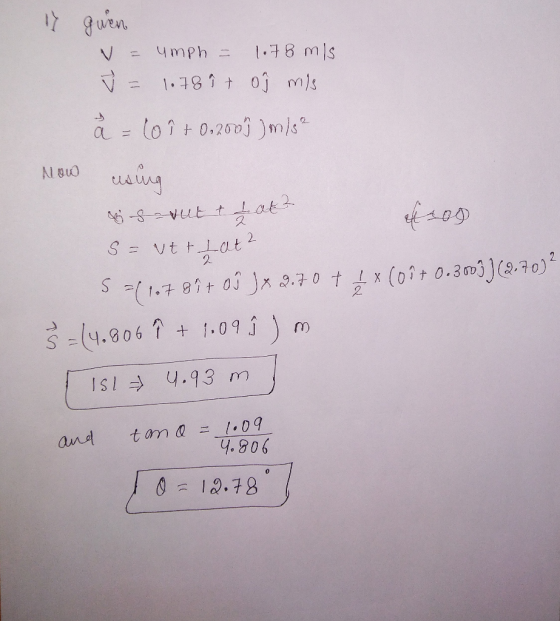 1) given
V = 4mph = 1.78 m/s
V⃗ = 1.78 î + 0ĵ m/s
a⃗ = (0 î + 0.200ĵ) m/s²
Now using
S = vt + 1/2 at²
S = (1.78î + 0ĵ) × 2.70 + 1/2 × (0î + 0.300ĵ)(2.70)²
S⃗ = (4.806 î + 1.09 ĵ) m
|S| ⇒ 4.93 m
and tan θ = 1.09/4.806
θ = 12.78°